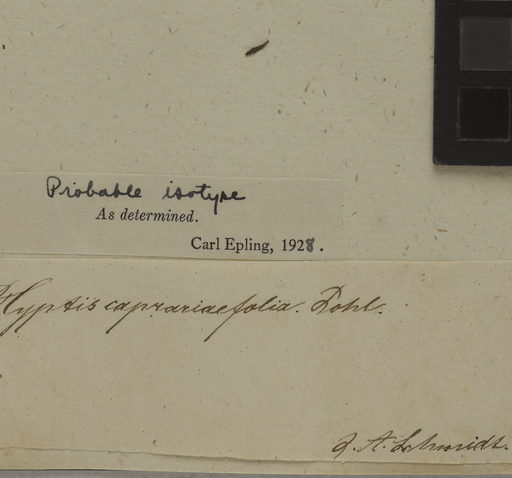 Probable isotype
As determined.
Carl Epling, 1928.
Hyptis caprariaefolia. Pohl.
J. A. Schmidt.